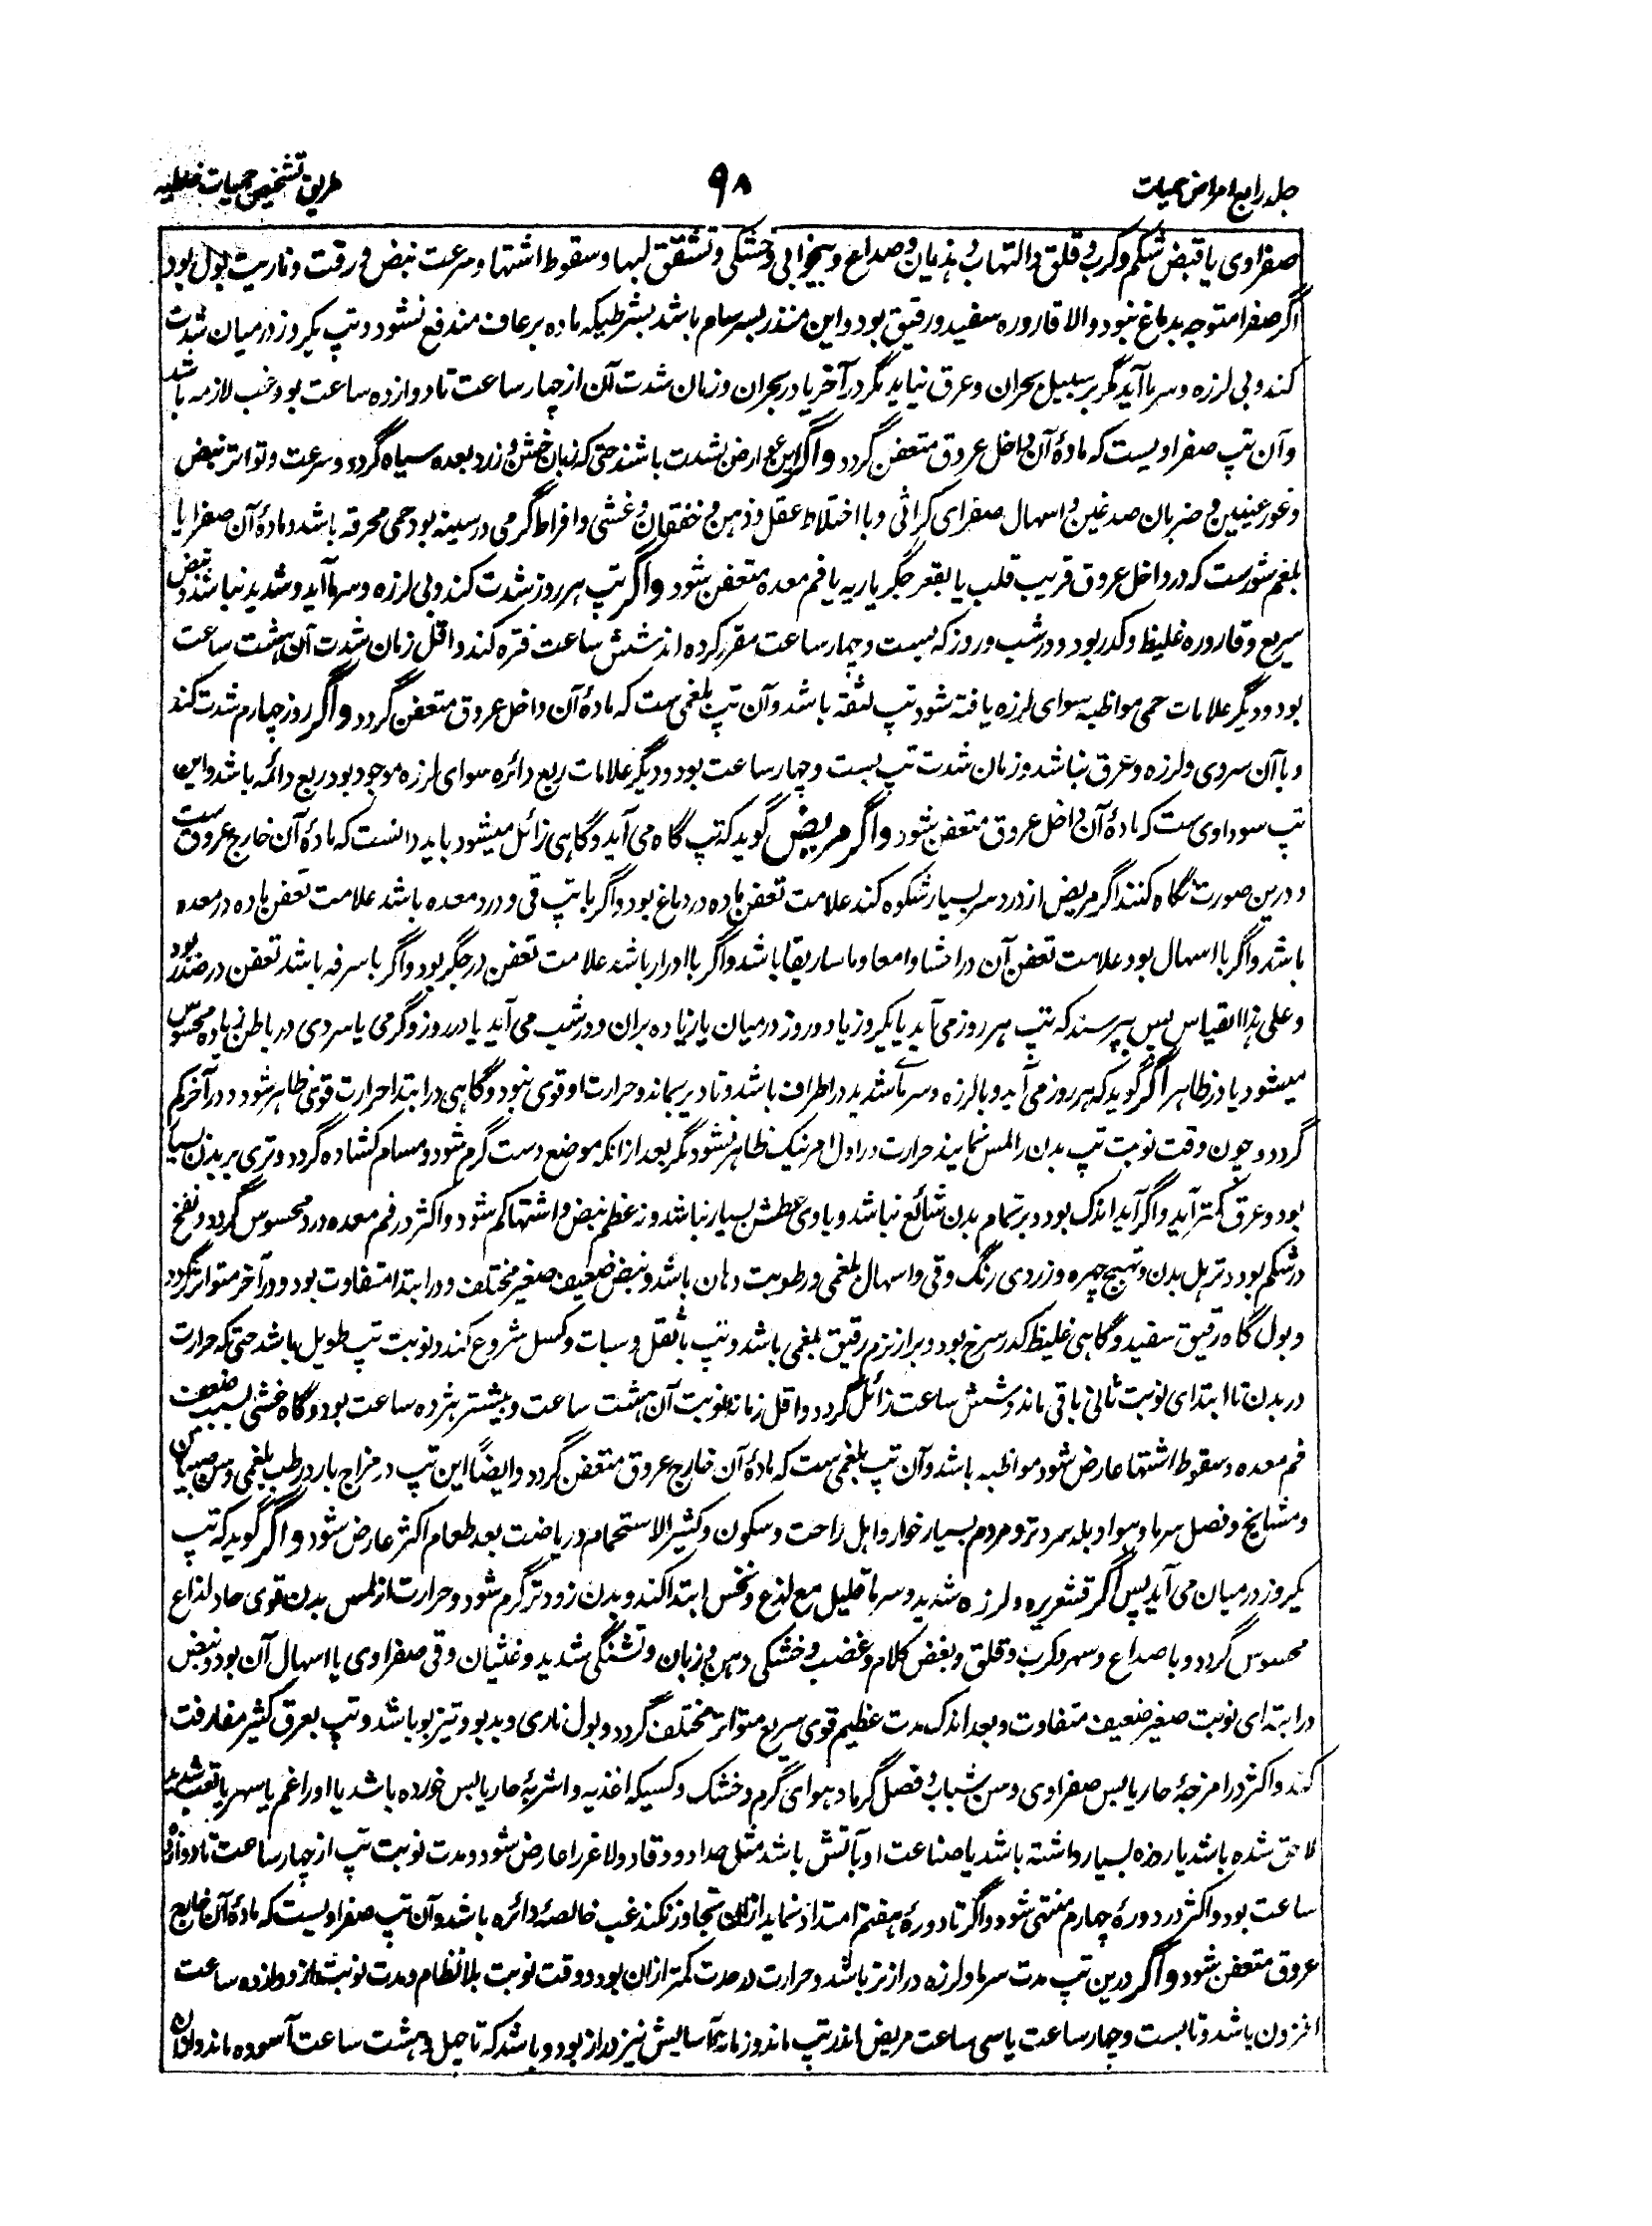 جلد رابع امراض حمیات
۹۸
طریق تشخیص حمیات خلطیه
صفراوی یا قبض شکم و کرب و قلق و التهاب و هذیان و صداع و بیخوابی و خشکی و تشقق لبها و سقوط اشتها و سرعت نبض و رقت و ناریت بول بود
اگر صفرا متوجه بدماغ نبود والا قاروره سفید و رقیق بود و این منذر بسرسام باشد بشرطیکه ماده برعاف مندفع نشود و تپ یکروز درمیان شدت
کند و بی لرزه و سرما آید مگر بر سبیل بحران و عرق نیاید مگر در آخر یا در بحران و زمان شدت آن از چهار ساعت تا دوازده ساعت بود غب لازمه باشد
و آن تپ صفراویست که مادۀ آن داخل عروق متعفن گردد و اگر این عوارض بشدت باشند حتی که زبان خشن و زرد بعده سیاه گردد و سرعت و تواتر نبض
و غور عینین و ضربان صدغین و اسهال صفرای کراثی و با اختلاط عقل و ذهن و خفقان و غشی و افراط گرمی در سینه بود حمی محرقه باشد و مادۀ آن صفرا یا
بلغم شورست که در داخل عروق قریب قلب یا بقعر جگر یا ریه یا فم معده متعفن شود و اگر تپ هر روز شدت کند و بی لرزه و سرما آید و شدید نباشد و نبض
سریع و قاروره غلیظ و کدر بود و در شب و روز که بیست و چهار ساعت مقرر کرده اند شش ساعت فتره کند و اقل زمان شدت آن هشت ساعت
بود و دیگر علامات حمی مواظبه سوای لرزه یافته شود تپ لثقه باشد و آن تپ بلغمی ست که مادۀ آن داخل عروق متعفن گردد و اگر روز چهارم شدت کند
و با آن سردی و لرزه و عرق نباشد و زمان شدت تپ بست و چهار ساعت بود و دیگر علامات ربع دائره سوای لرزه موجود بود ربع دائمه باشد و این
تپ سوداوی ست که مادۀ آن داخل عروق متعفن شود و اگر مریض گوید که تپ گاه می آید و گاهی زائل میشود باید دانست که مادۀ آن خارج عروق ست
و درین صورت نگاه کنند اگر مریض از درد سر بسیار شکوه کند علامت تعفن ماده در دماغ بود و اگر با تپ قی و درد معده باشد علامت تعفن ماده در معده
باشد و اگر با اسهال بود علامت تعفن آن در احشا و امعا و ماساریقا باشد و اگر با ادرار باشد علامت تعفن در جگر بود و اگر با سرفه باشد تعفن در صدر بود
و علی هذا القیاس پس بپرسند که تپ هر روز می آید یا یکروز یا دو روز درمیان یا زیاده بران و در شب می آید یا در روز و گرمی یا سردی در باطن زیاده محسوس
میشود یا در ظاهر اگر گوید که هر روز می آید و با لرزه و سرمای شدید در اطراف باشد و تا دیر بماند و حرارت او قوی نبود و گاهی در ابتدا حرارت قوی ظاهر شود و در آخر کم
گردد و چون وقت نوبت تپ بدن را لمس نمایند حرارت در اول امر نیک ظاهر نشود مگر بعد از انکه موضع دست گرم شود و مسام کشاده گردد و تری بر بدن بسیار
بود و عرق کمتر آید و اگر آید اندک بود و بر تمام بدن شائع نباشد و با وی عطش بسیار نباشد و نه عظم نبض و اشتها کم شود و اکثر در فم معده درد محسوس گردد و نفخ
در شکم بود و ترهل بدن و تهیج چهره و زردی رنگ و قی و اسهال بلغمی و رطوبت دهان باشد و نبض ضعیف صغیر مختلف و در ابتدا متفاوت بود و در آخر متواتر گردد
و بول گاه رقیق سفید و گاهی غلیظ کدر سرخ بود و براز نرم رقیق بلغمی باشد و تپ با ثقل و سبات و کسل شروع کند و نوبت تپ طویل باشد حتی که حرارت
در بدن تا ابتدای نوبت ثانی باقی ماند و شش ساعت زائل گردد و اقل زمانۀ نوبت آن هشت ساعت و بیشتر هژده ساعت بود و گاه غشی بسبب ضعف
فم معده و سقوط اشتها عارض شود مواظبه باشد و آن تپ بلغمی ست که مادۀ آن خارج عروق متعفن گردد و ایضاً این تپ در مزاج بارد رطب بلغمی و سن صبیان
و مشایخ و فصل سرما و هوا و بلد سرد تر و مردم بسیار خوار و اهل راحت و سکون و کثیر الاستحمام و ریاضت بعد طعام اکثر عارض شود و اگر گوید که تپ
یکروز درمیان می آید پس اگر قشعریره و لرزه شدید و سرما قلیل مع لذع و نخس ابتدا کند و بدن زودتر گرم شود و حرارت از لمس بدن قوی حاد لذاع
محسوس گردد و با صداع و سهر و کرب و قلق و بغض کلام و غضب و خشکی دهن و زبان و تشنگی شدید و غثیان و قی صفراوی یا اسهال آن بود و نبض
در ابتدای نوبت صغیر ضعیف متفاوت و بعد اندک مدت عظیم قوی سریع متواتر مختلف گردد و بول ناری و بدبو و تیز بو باشد و تپ بعرق کثیر مفارقت
کند و اکثر در امزجۀ حار یابس صفراوی و سن شباب و فصل گرما و هوای گرم و خشک و کسیکه اغذیه و اشربۀ حار یابس خورده باشد یا او را غم یا سهر یا تعب شدید
لاحق شده باشد یا روزه بسیار داشته باشد یا صناعت او بآتش باشد مثل حداد و وقاد و لاغر را عارض شود و مدت نوبت تپ از چهار ساعت تا دوازده
ساعت بود و اکثر در دورۀ چهارم منتهی شود و اگر تا دورۀ هفتم امتداد نماید ازان تجاوز نکند غب خالصۀ دائره باشد و آن تپ صفراویست که مادۀ آن خارج
عروق متعفن شود و اگر درین تپ مدت سرما و لرزه درازتر باشد و حرارت و حدت کمتر ازان بود و وقت نوبت بلا نظام و مدت نوبت از دوازده ساعت
افزون باشد و تا بست و چهار ساعت یا سی ساعت مریض اندر تپ ماند و زمانۀ آسایش نیز دراز بود و باشد که تا چهل و هشت ساعت آسوده ماند